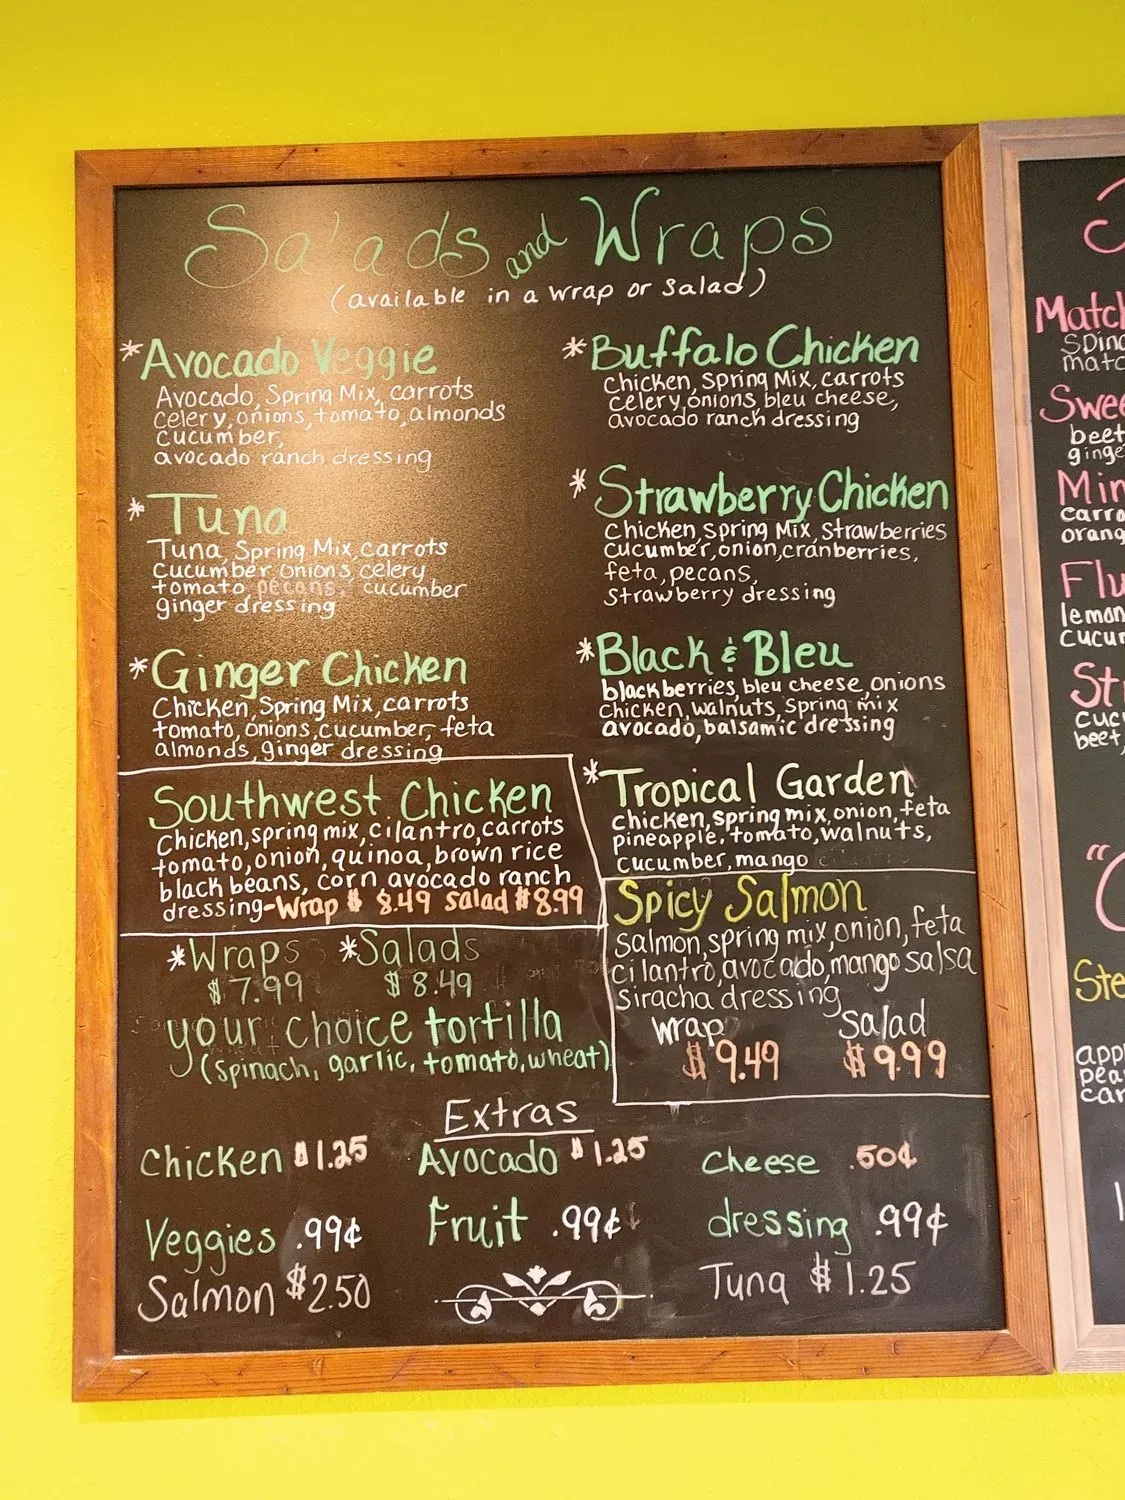 Salads and Wraps
(available in a wrap or salad)
*Avocado Veggie
Avocado, Spring Mix, carrots
celery, onions, tomato, almonds
cucumber,
avocado ranch dressing
*Tuna
Tuna, Spring Mix, carrots
cucumber onions, celery
tomato, pecans, cucumber
ginger dressing
*Ginger Chicken
Chicken, Spring Mix, carrots
tomato, onions, cucumber, feta
almonds, ginger dressing
Southwest Chicken
Chicken, spring mix, cilantro, carrots
tomato, onion, quinoa, brown rice
black beans, corn avocado ranch
dressing-Wrap $ 8.49 salad $8.99
*Wraps *Salads
$7.99 $8.49
your choice tortilla
(spinach, garlic, tomato, wheat)
*Buffalo Chicken
Chicken, Spring Mix, carrots
celery, onions bleu cheese,
avocado ranch dressing
*Strawberry Chicken
Chicken, Spring Mix, Strawberries
cucumber, onion, cranberries,
feta, pecans,
strawberry dressing
*Black & Bleu
blackberries, bleu cheese, onions
chicken, walnuts, spring mix
avocado, balsamic dressing
*Tropical Garden
chicken, spring mix, onion, feta
pineapple, tomato, walnuts,
cucumber, mango
Spicy Salmon
salmon, spring mix, onion, feta
cilantro, avocado, mango salsa
siracha dressing
wrap salad
$9.49 $9.99
Extras
Chicken $1.25 Avocado $1.25 Cheese .50¢
Veggies .99¢ Fruit .99¢ dressing .99¢
Salmon $2.50 Tuna $1.25